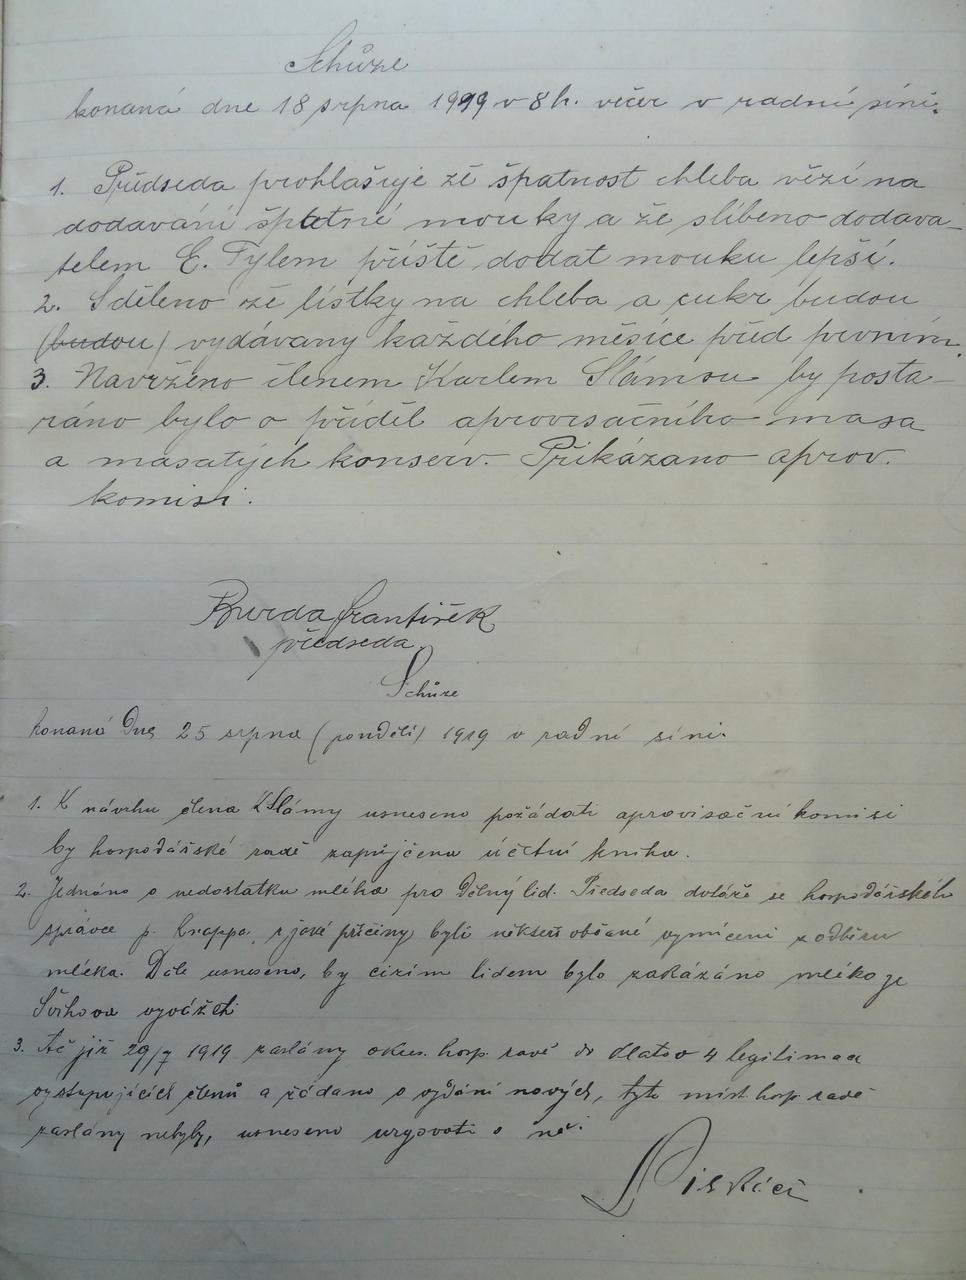 Schůze
konaná dne 18 srpna 1919 v 8 h. večer v radní síni.
1. Předseda prohlašuje zě špatnost chleba vězí na
dodavání špatné mouky a že slíbeno dodava-
telem E. Tylem příště dodat mouku lepší.
2. Sděleno zě lístky na chleba a cukr budou
(budou) vydávany každého měsíce před prvním.
3. Navrženo členem Karlem Slámou by posta-
ráno bylo o příděl aprovisačního masa
a masatých konserv. Přikázano aprov.
komisi.
Burda František
předseda.
Schůze
konaná Dne 25 srpna (pondělí) 1919 v radní síni.
1. K návrhu člena K Slámy usneseno požádati aprovisační komisi
by hospodářské radě zapůjčena účetní kniha.
2. Jednáno o nedostatku mléka pro Dělný lid. Předseda dotáže se hospodářského
správce p. Knappa, z jaké příčiny byli někteří občané vymíceni z odběru
mléka. Dále usneseno, by cizím lidem bylo zakázáno mléko ze
Švihova vyvážeti
3. Ač již 29/7 1919 zaslány okres. hosp. radě do Klatov 4 legitimace
vystupujících členů a žádáno o vydání nových, tyto míst. hosp. radě
zaslány nebyly, usneseno urgovati o ně.